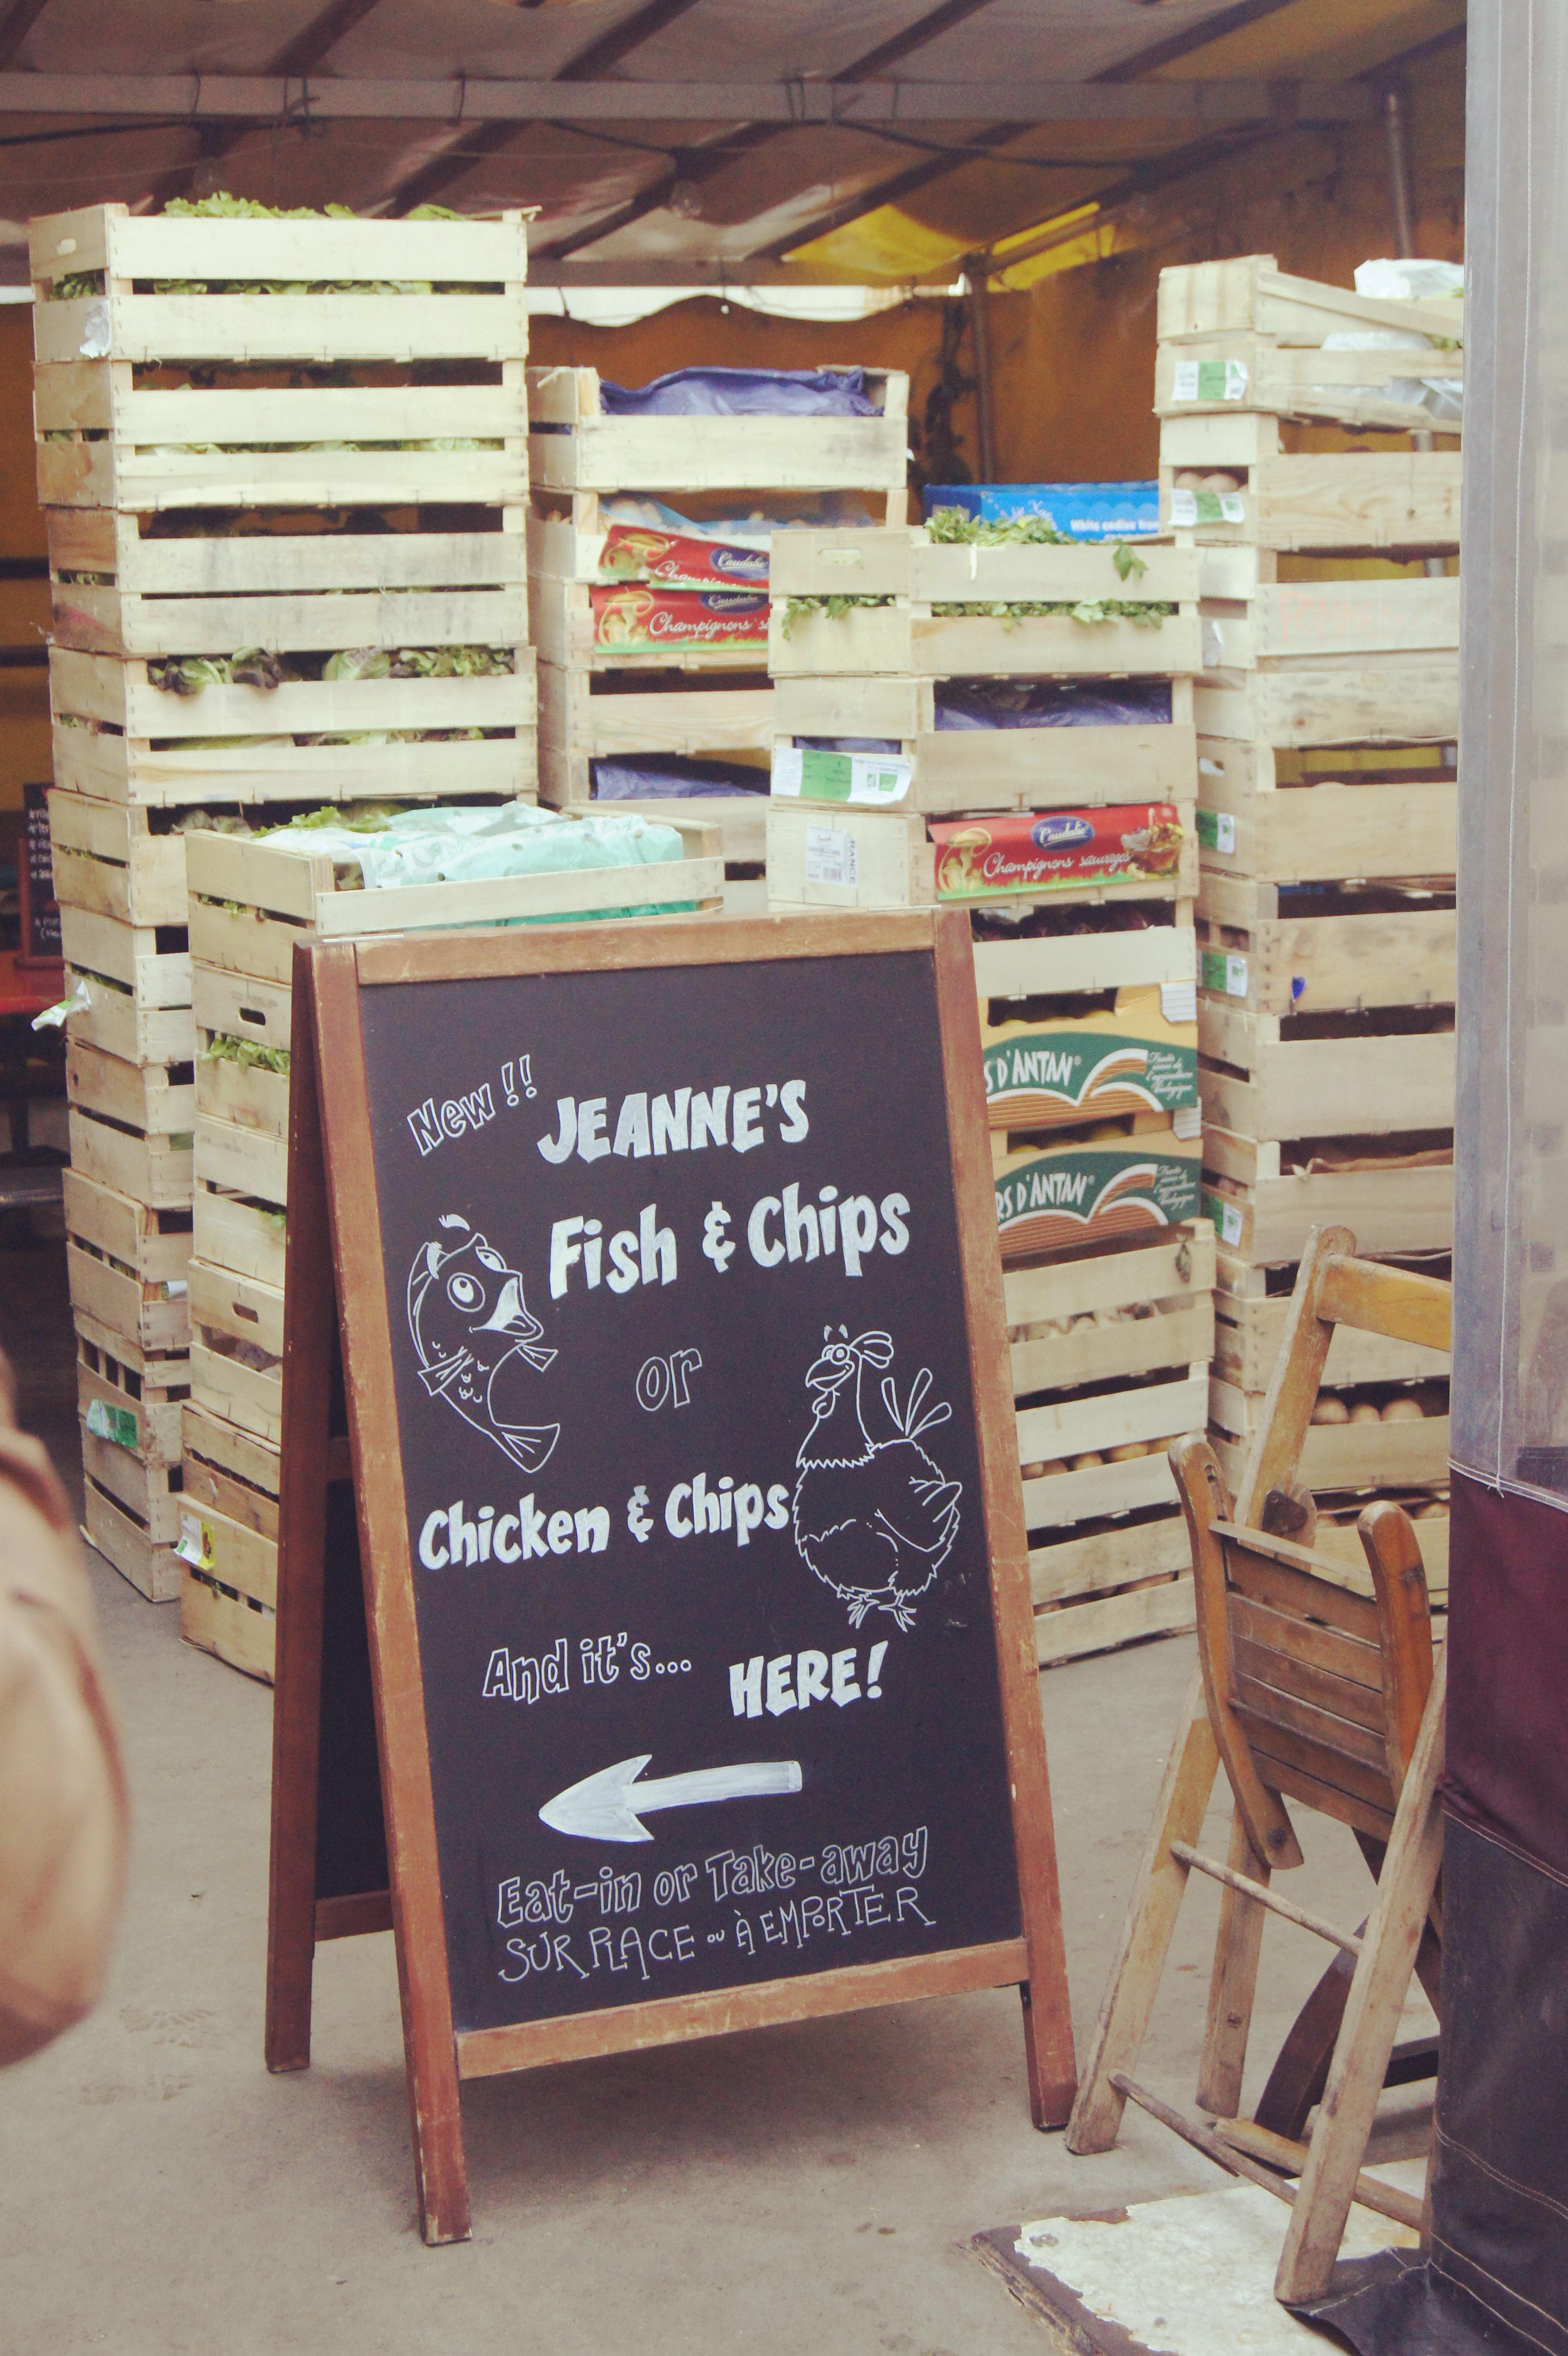 White endive from
Caudalie
Caudalie
Champignons
Caudalie
Champignons sauvages
RANCE
S D'ANTAN®
RS D'ANTAN®
New!! JEANNE'S
Fish & Chips
or
Chicken & Chips
And it's... HERE!
Eat-in or Take-away
SUR PLACE ou À EMPORTER